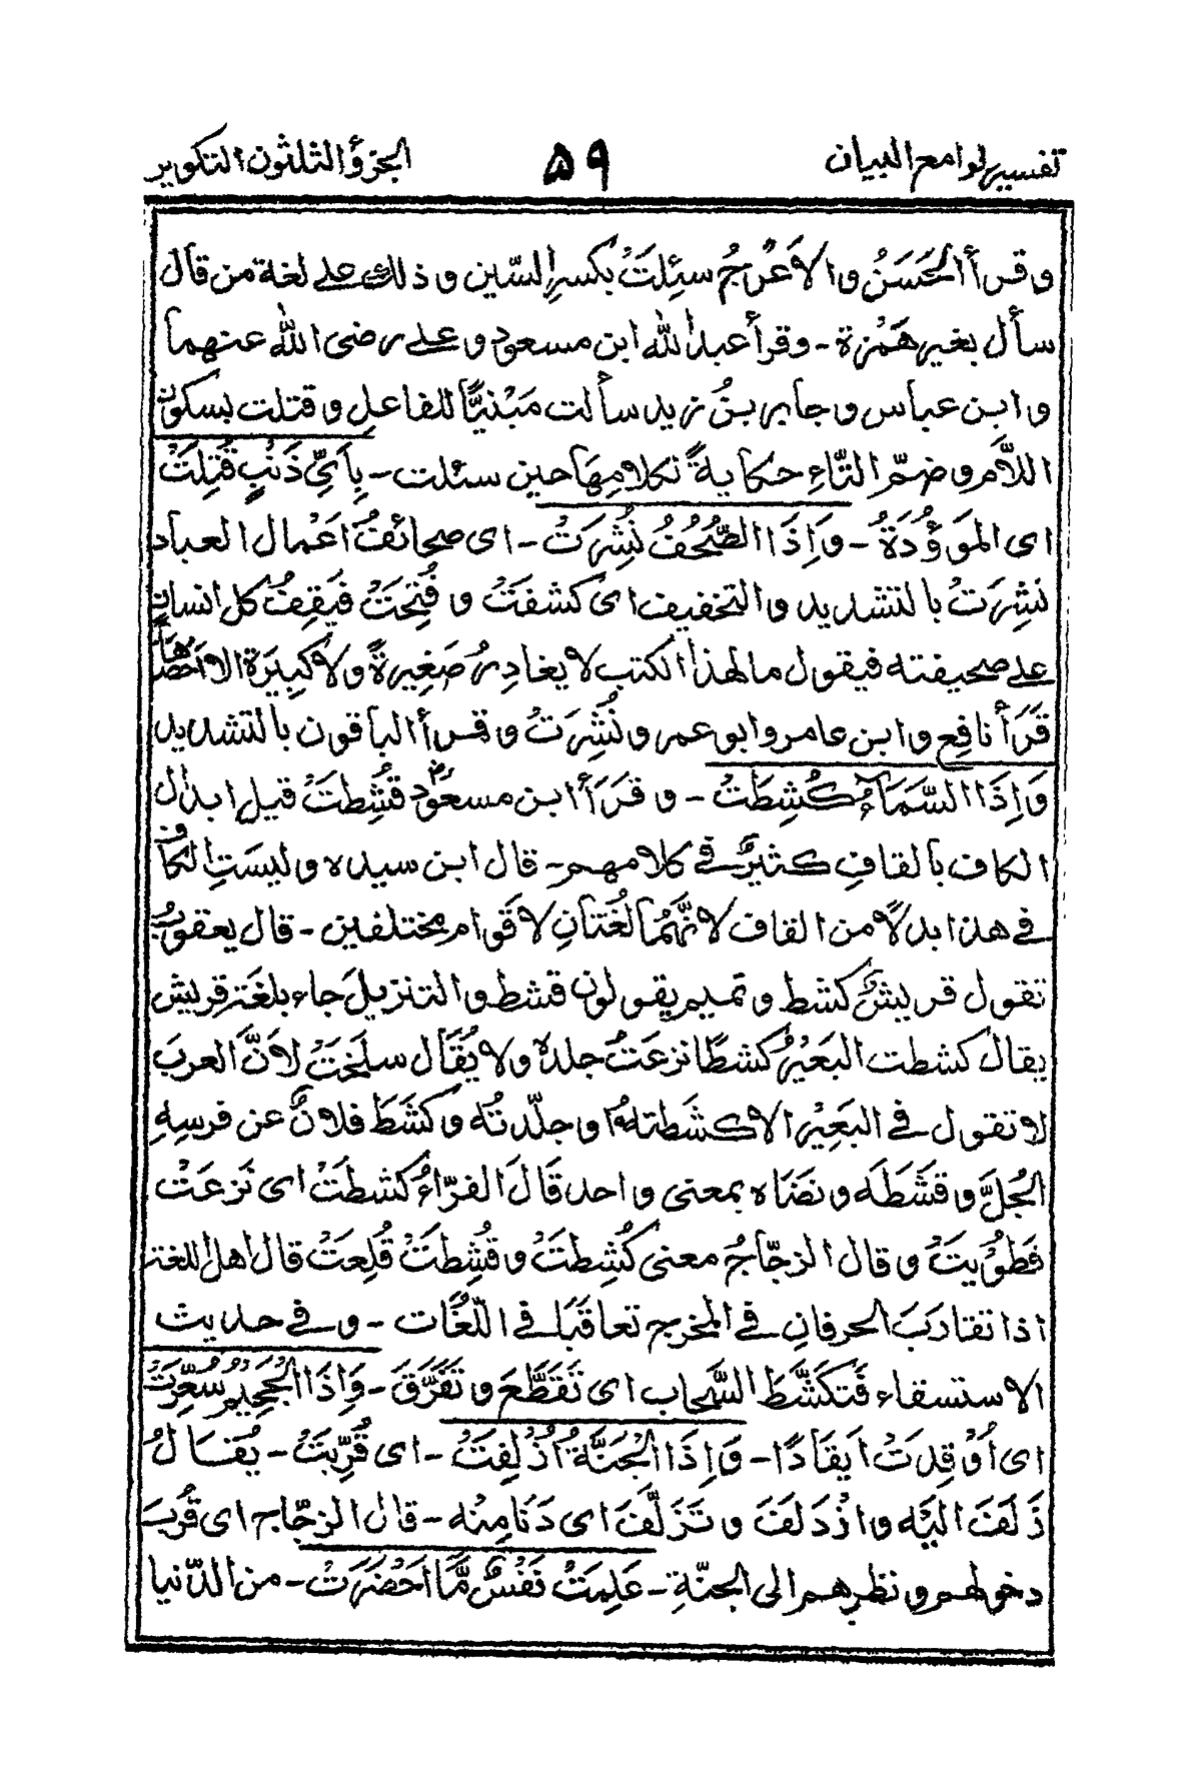 تفسیر لوامع البیان ۵۹ الجزؤ الثلثون التکویر
و قرأ الحَسَنُ والاَعْرجُ سئِلَتْ بکسرِ السّین و ذلك علے لغة من قال
سأل بغیر هَمْزة - وقرأ عبد اللہ ابن مسعود و علے رضی اللہ عنهما
و ابن عباس و جابر بنُ زید سألت مَبْنیًّا للفاعلِ و قتلت بسکون
اللاَّم و ضمّ التّاءِ حکایةً لکلامِهَا حین سئلت - بِاَیِّ ذَنْبٍ قُتِلَتْ
ای المَوْؤُدَةُ - وَاِذَا الصُّحُفُ نُشِرَتْ - ای صحائفُ اَعْمال العباد
نشِرَتْ بالتشدید والتخفیف ای کشفَتْ و فُتِحَتْ فَیَقِفُ کل انسانٍ
علے صحیفته فیقول مالهذا الکتٰب لا یغادِرُ صَغِیرةً ولا کَبِیرَةً الا اَحْصٰهَا
قَرَأَ نافِع وابن عامر وابو عمر و نُشِرَتْ و قرأ الباقون بالتشدید
وَاِذَا السَّمَآءُ کُشِطَتْ - و قَرَأَ ابن مسعود قُشِطَتْ قیل ابدال
الکاف بالقافِ کثیرٌ فے کلامهم - قال ابن سیدہ ولیسَتِ الکاف
فے هذا بدلاً من القاف لانّهُمَا لُغَتَانِ لاَقوام مختلفین - قال یعقوبُ
تقول قریشٌ کشط و تمیم یقولون قشط والتنزیلَ جاء بلغةِ قریش
یقال کشطت البَعِیْرُ کشطًا نزعَتْ جلدهُ ولا یُقَال سلَخَتْ لاَنَّ العربَ
لا تقول فے البَعِیْر الا کشَطتهُ او جلّدتُه و کشَطَ فلانٌ عن فرسِهِ
الجُلَّ و قشَطَه و نضَاہ بمعنی واحد قَالَ الفرّاءُ کُشطَتْ ای نَزعَتْ
فَطُوِیتَ و قال الزجّاجُ معنی کُشِطَتْ و قُشِطَتْ قُلِعَتْ قال اهل اللغة
اذا تقاربَ الحرفانِ فے المخرج تعاقَبَا فے اللّغَات - و فے حدیث
الاستسقاء فَتکَشَّطَ السَّحاب ای تَقَطَّعَ و تَفَرَّقَ - وَاِذَا الجَحِیْمُ سُعِّرَتْ
ای اُوْقِدَتْ اَیقَادًا - وَاِذَا الجَنَّةُ اُزْلِفَتْ - ای قُرِّبَتْ - یُقَالُ
زَلَفَ الَیْه وازْدَلَفَ و تَزَلَّفَ ای دَنَا مِنْه - قال الزجّاج ای قَرُبَ
دخولهم و نظرهم الی الجنّةِ - عَلِمَتْ نَفْسٌ مَّا اَحْضَرَتْ - من الدّنیا